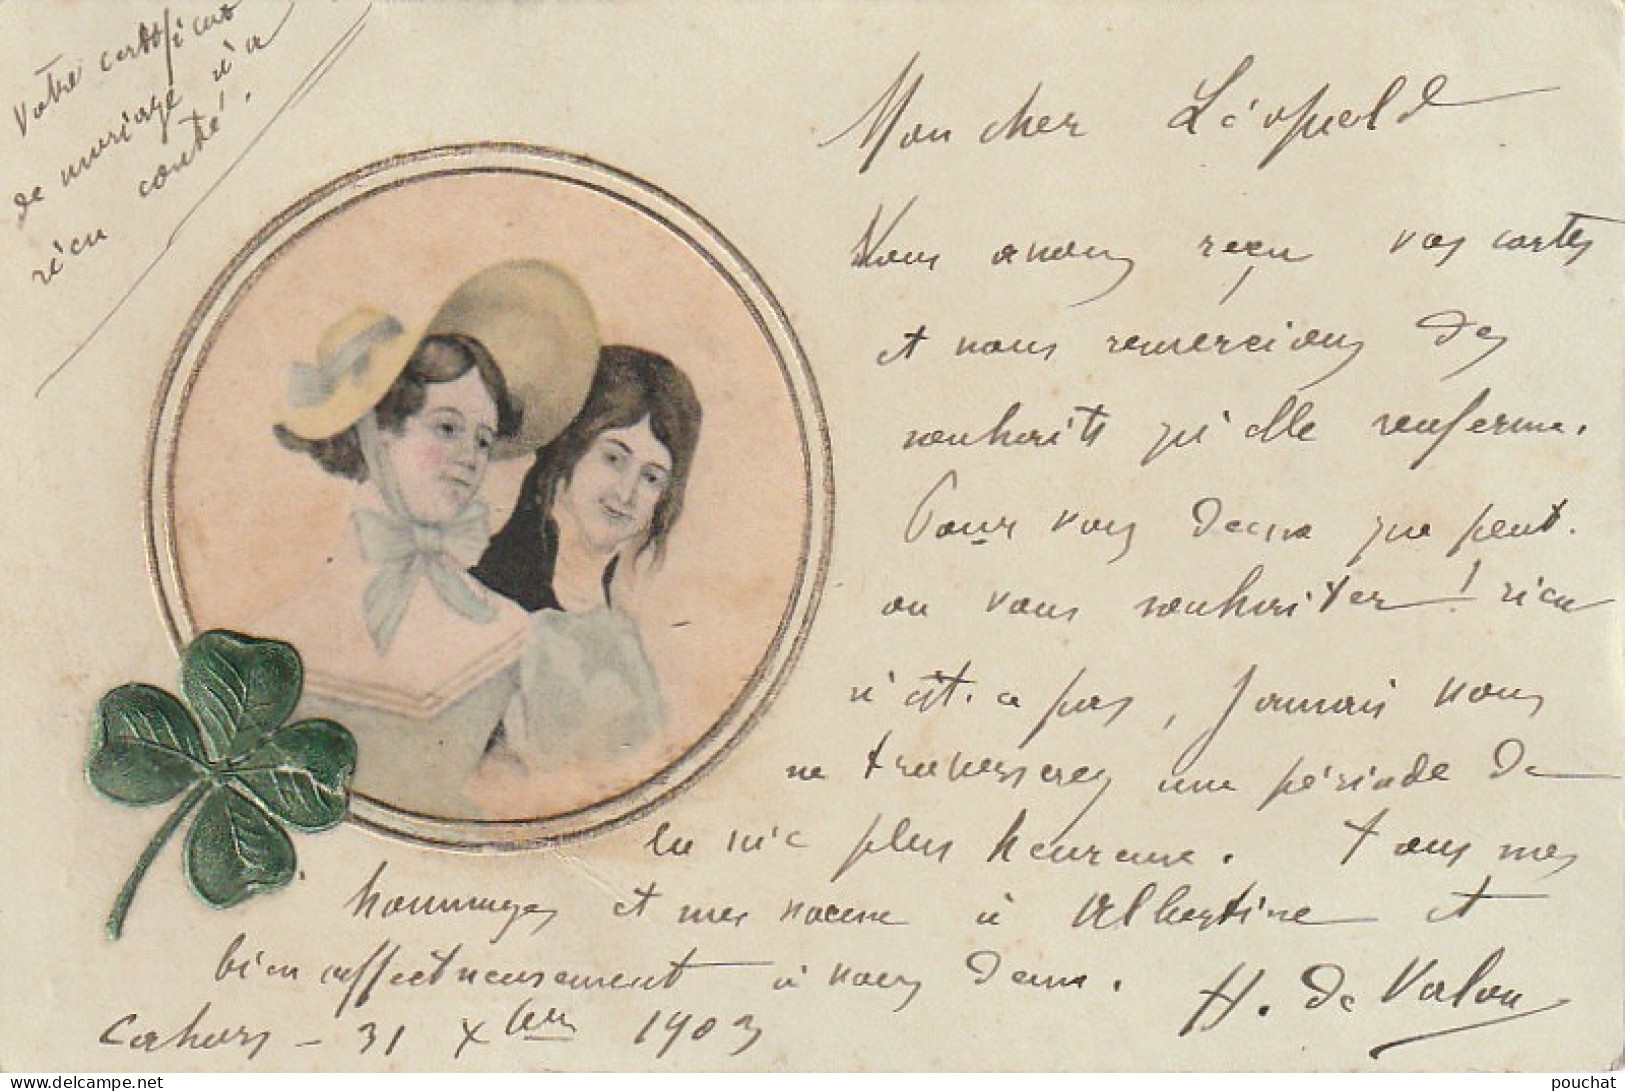 Votre certificat
de mariage n'a
rien couté !
Mon cher Léopold
Nous avons reçu vos cartes
et nous remercions des
souhaits qu'elle renferme.
Pour vous deux que peut.
on vous souhaiter ! rien
n'est-a pas, Jamais vous
ne traverserez une période de
la vie plus heureuse. Tous mes
hommages et mes voeux à Albertine et
bien affectueusement à vous deux.
H. de Valon
Cahors - 31 Xbre 1903
pouchat